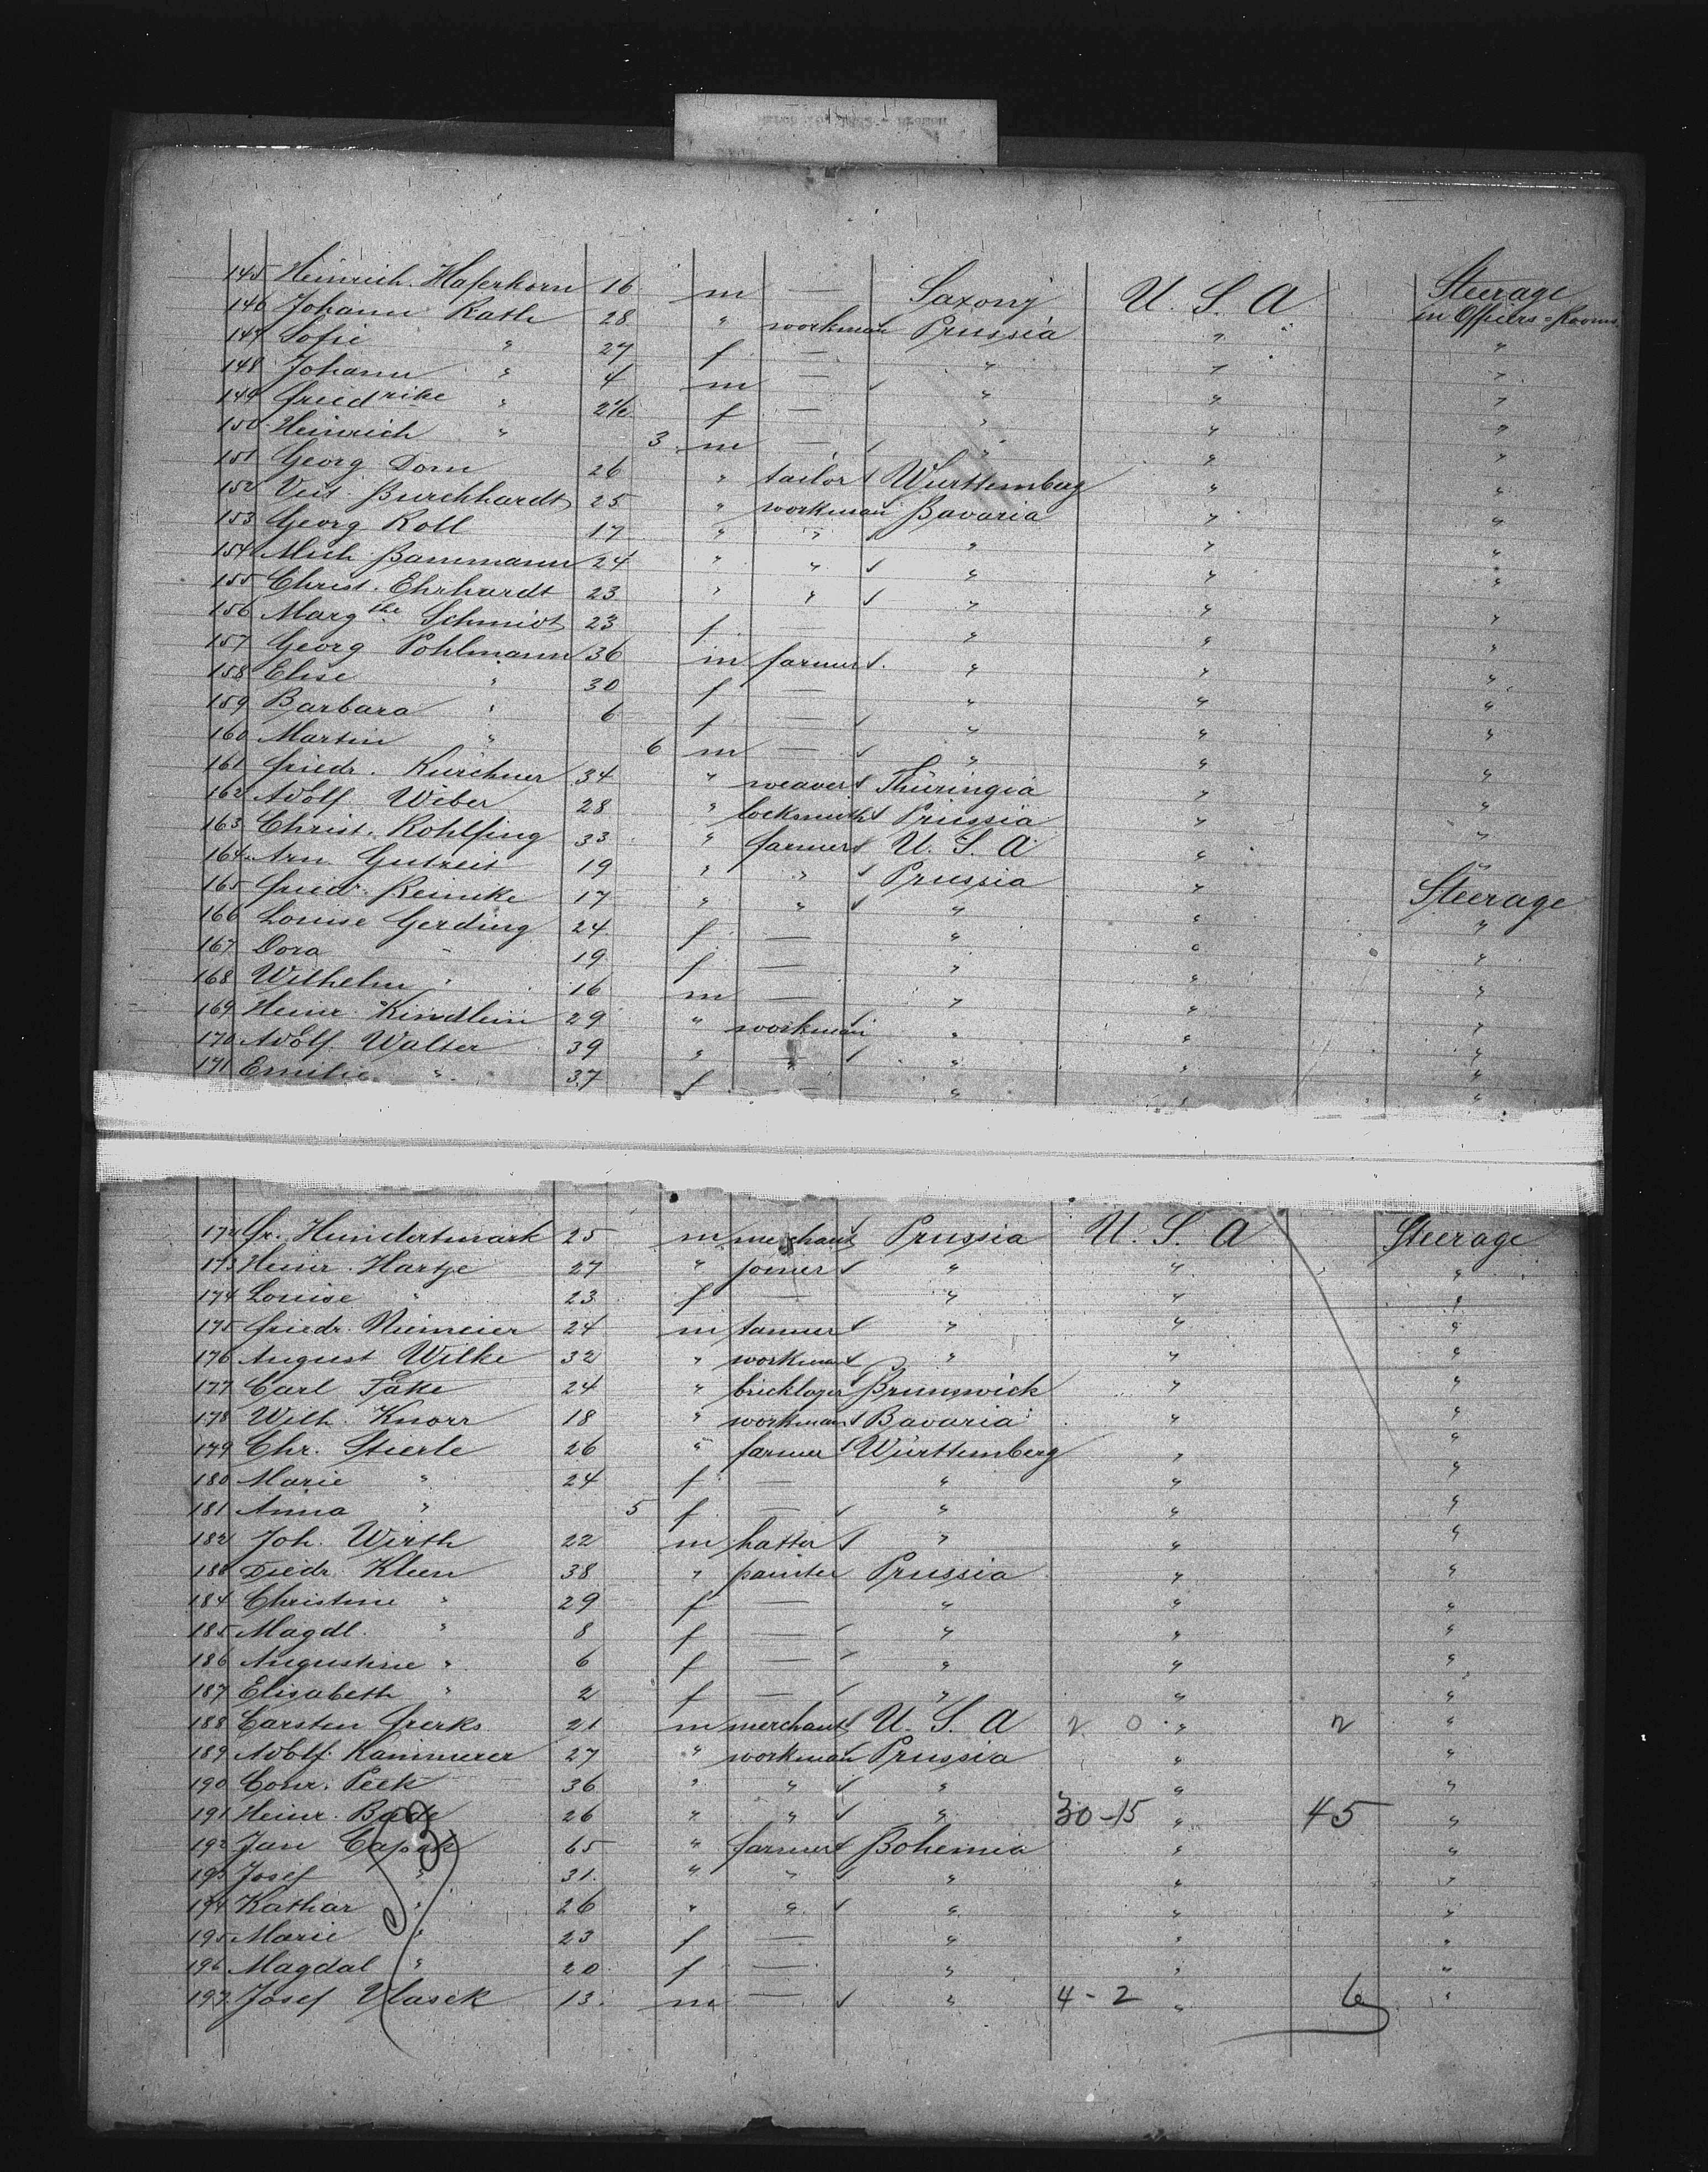 145 Heinrich Haferkorn 16 m — Saxony U. S. A Steerage
146 Johann Rath 28 " workman Prussia " in Officers=Rooms
147 Sofie " 27 f — " " "
148 Johann " 4 m — " " "
149 Friedrike " 2 1/2 f — " " "
150 Heinrich " 3 m — " " "
151 Georg Dorn 26 " tailor Württemberg " "
152 Veit Burckhardt 25 " workman Bavaria " "
153 Georg Roll 17 " " " " "
154 Mich. Bammann 24 " " " " "
155 Christ. Ehrhardt 23 " " " " "
156 Margthe Schmidt 23 f — " " "
157 Georg Pohlmann 36 m farmer " " "
158 Elise " 30 f — " " "
159 Barbara " 6 f — " " "
160 Martin " 6 m — " " "
161 Friedr. Kirchner 34 " weaver Thüringia " "
162 Adolf Weber 28 " locksmith Prussia " "
163 Christ. Rohlfing 33 " farmer U. S. A " "
164 Arn. Gutzeit 19 " " Prussia " "
165 Friedr. Reincke 17 " " " " Steerage
166 Louise Gerding 24 f — " " "
167 Dora " 19 f — " " "
168 Wilhelm " 16 m — " " "
169 Heinr. Kindlein 29 " workman " " "
170 Adolf Walter 39 " " " " "
171 Emilie " 37 f — " " "
172 Fr. Hundertmark 25 m merchant Prussia U. S. A Steerage
173 Heinr. Hartje 27 " joiner " " "
174 Louise " 23 f — " " "
175 Friedr. Niemeier 24 m tanner " " "
176 August Wilke 32 " workman " " "
177 Carl Fäke 24 " bricklayer Brunswick " "
178 Wilh. Knorr 18 " workman Bavaria " "
179 Chr. Stierle 26 " farmer Württemberg " "
180 Marie " 24 f — " " "
181 Anna " 5 f — " " "
182 Joh. Wirth 22 m hatter " " "
183 Diedr. Kleen 38 " painter Prussia " "
184 Christine " 29 f — " " "
185 Magdl. " 8 f — " " "
186 Augustine " 6 f — " " "
187 Elisabeth " 2 f — " " "
188 Carsten Frerks 21 m merchant U. S. A 2 0 " 2 "
189 Adolf Kammerer 27 " workman Prussia " "
190 Conr. Peek 36 " " " " "
191 Heinr. Bade 26 " " " 30-15 " 45 "
192 Jan Capek 65 " farmer Bohemia " "
193 Josef " 31 " " " " "
194 Kathar " 26 " " " " "
195 Marie " 23 f — " " "
196 Magdal " 20 f — " " "
197 Josef Vlasek 13 m — " 4-2 " 6 "